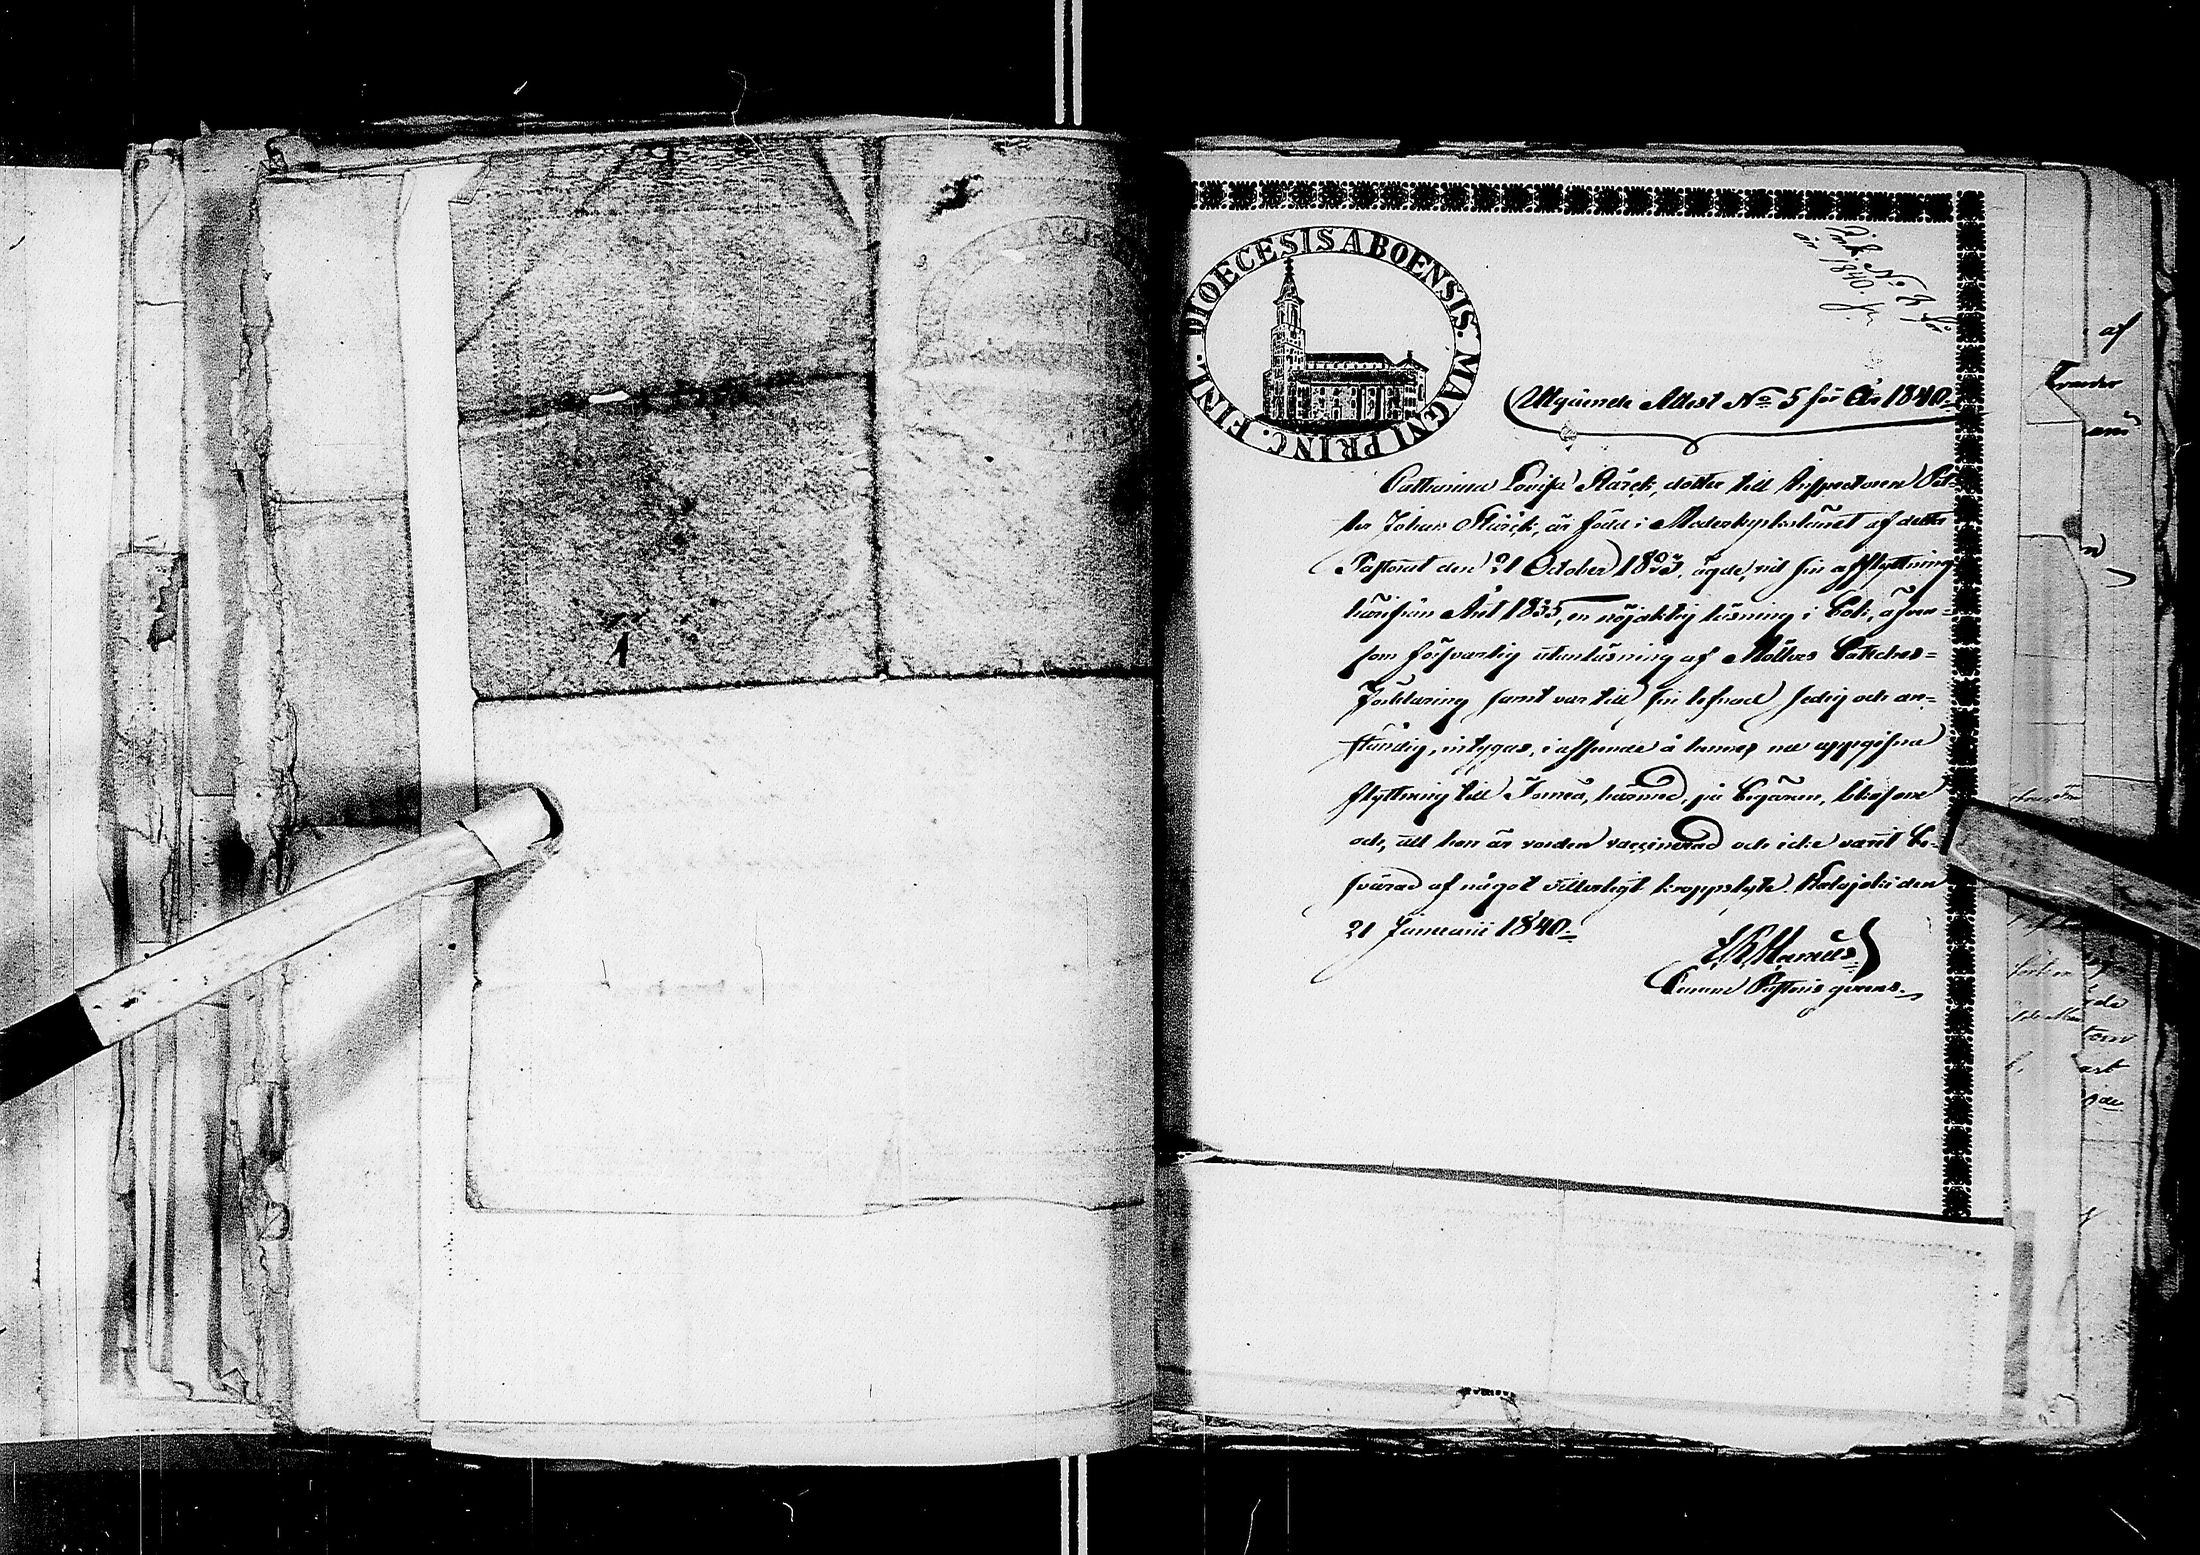 DIOECESIS ABOENSIS. MAGNI PRINC. FINL.
Ink. No 3 för
år 1840.
Utgående Attest No 5 för År 1840.
Catharina Lovisa Starck, dotter till Inspectoren Pet-
ter Johan Starck, är född i Moderkyrkolänet af detta
Pastorat den 21 October 1823, ägde, vid sin afflyttning
härifrån Året 1835, en nöjaktig läsning i Bok, äfven-
som försvarlig utanläsning af Möllers Catches=
Förklaring samt var till sin lefnad sedig och an=
ständig, intygas, i afseende å hennes nu uppgifna
flyttning till Torneå, härmed, på begäran, likasom
och, att hon är vorden vaccinerad och icke varit be-
svärad af något villerligt kroppslyte. Kalajoki den
21 Januarii 1840.
Curam Pastoris gerens.
af
1